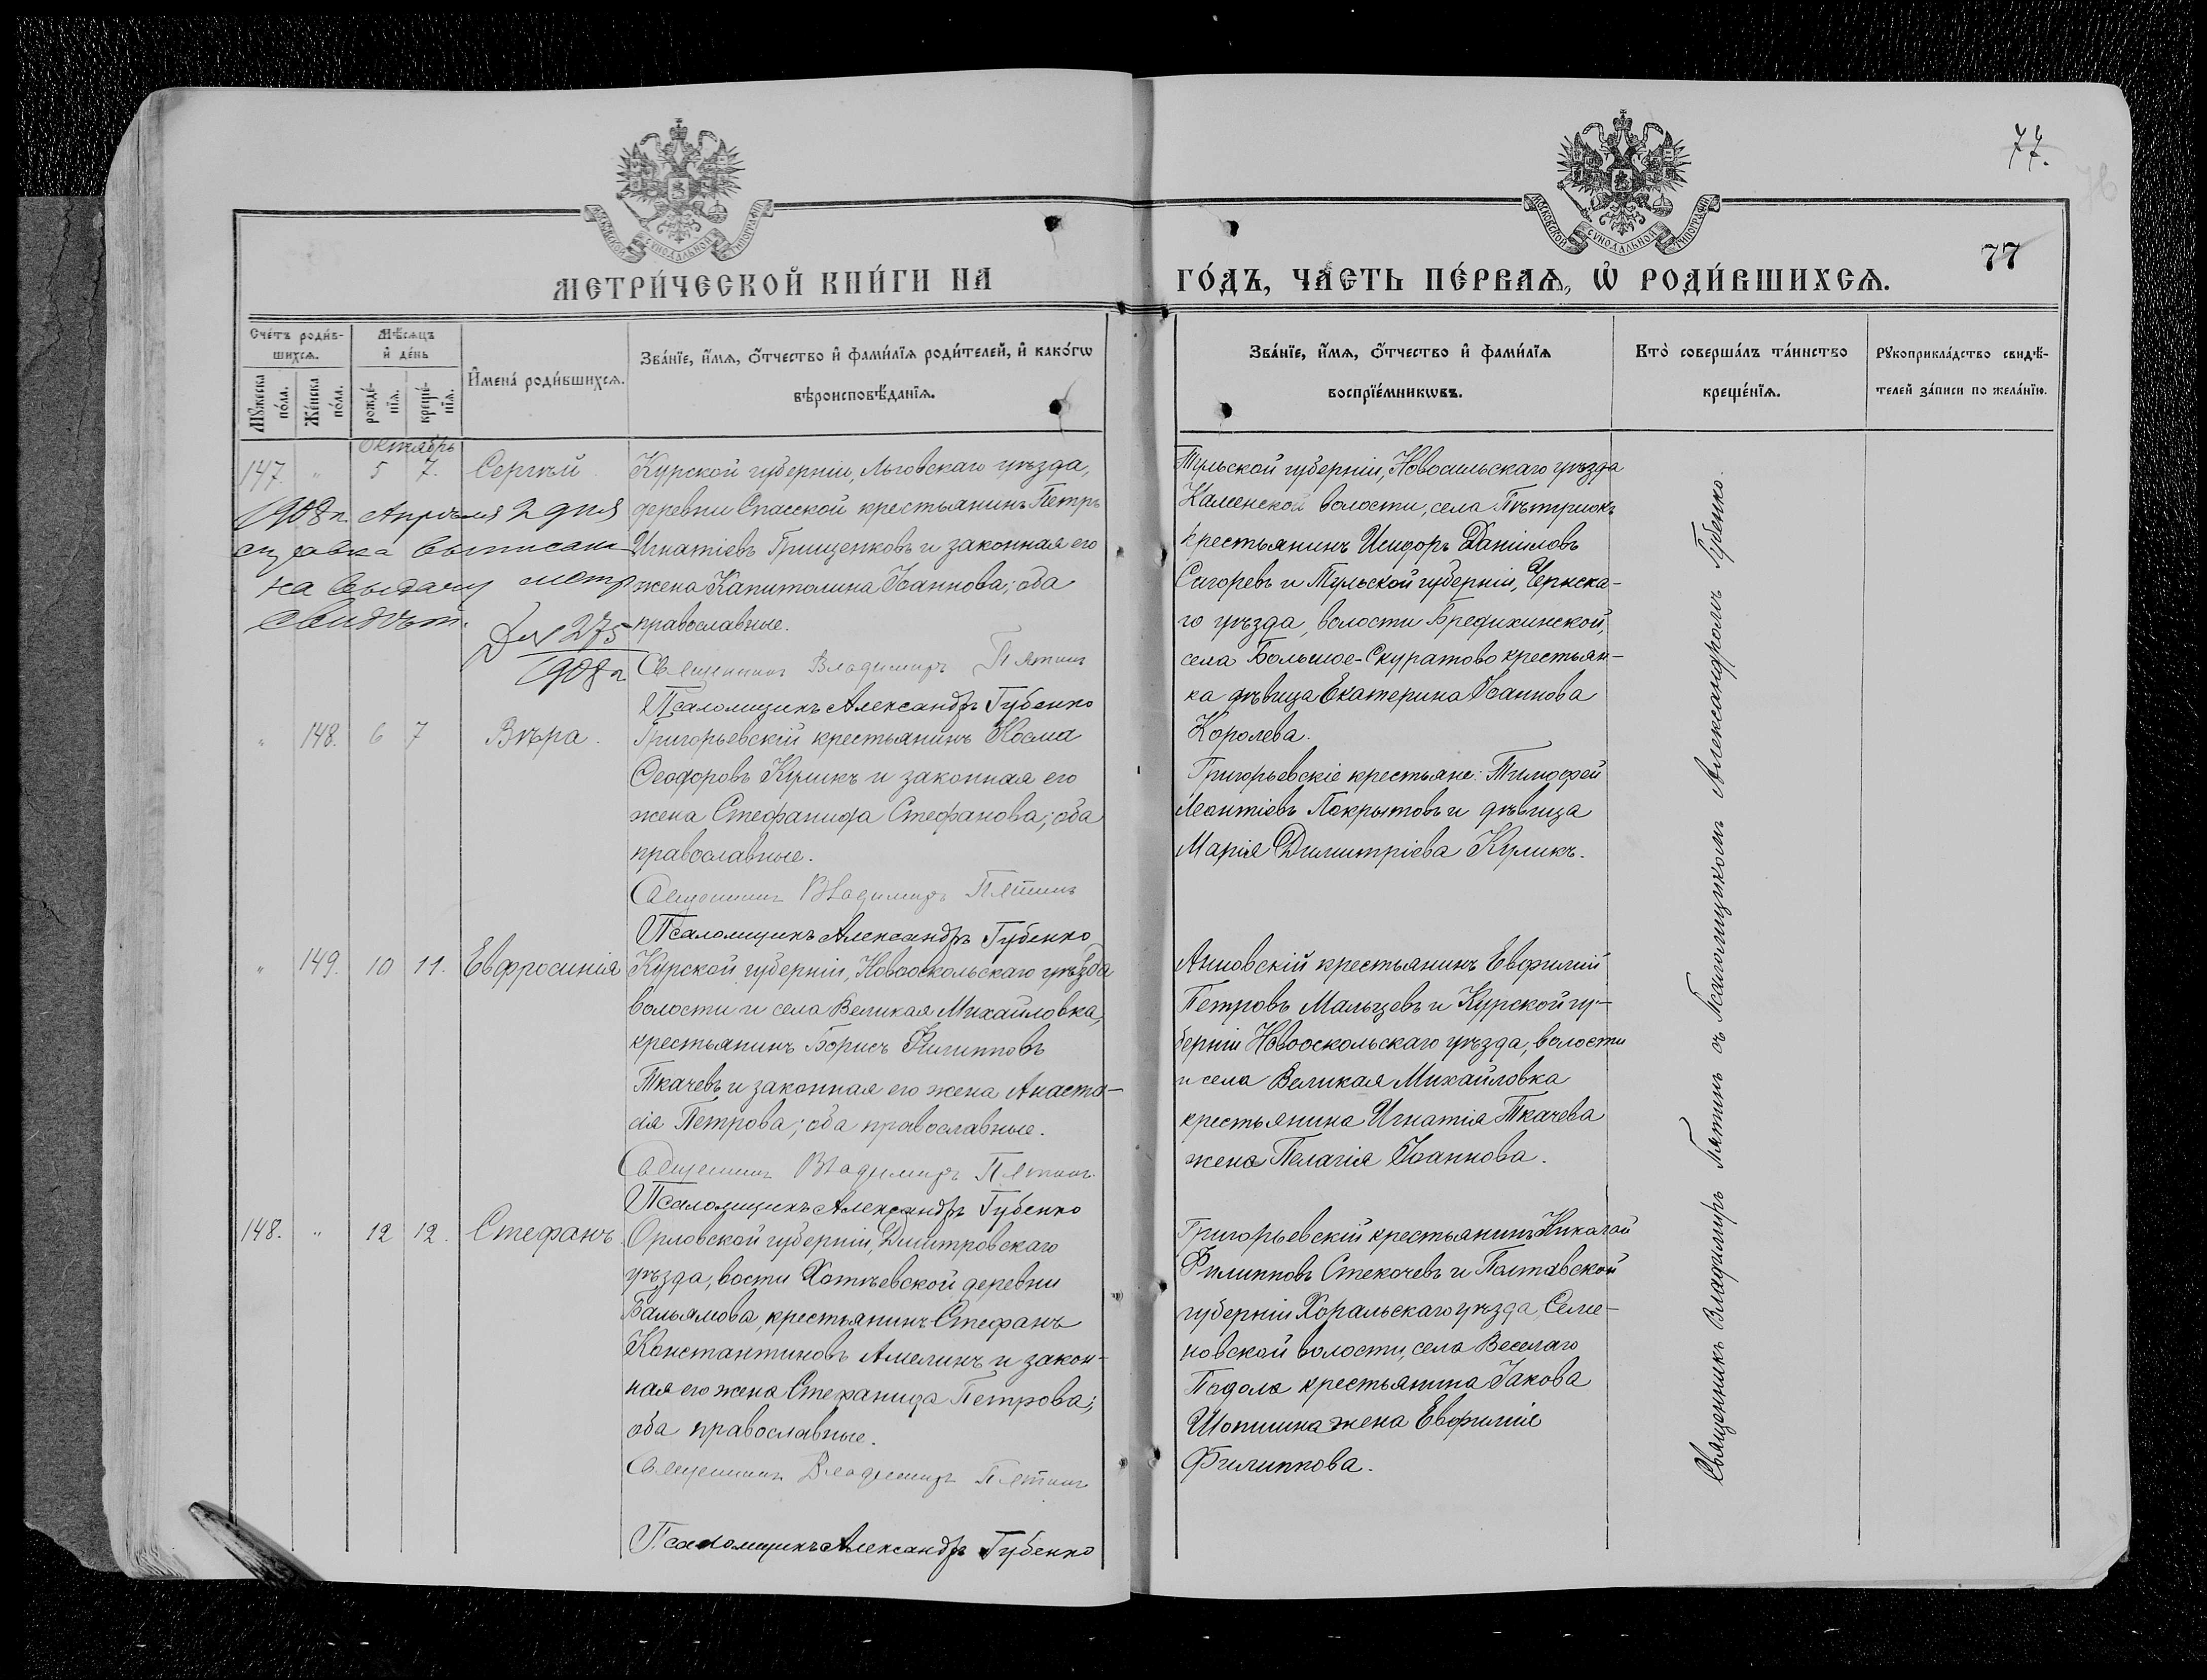 77.
МОСКОВСКОЙ СѴНОДАЛЬНОЙ ТИПОГРАФІИ
МОСКОВСКОЙ СѴНОДАЛЬНОЙ ТИПОГРАФІИ
77
МЕТРИ́ЧЕСКОЙ КНИ́ГИ НА
ГО́ДЪ, ЧА́СТЬ ПЕ́РВАѦ, Ѡ҆ РОДИ́ВШИХСѦ.
Сче́тъ роди́в-
шихсѧ.
Мѣ́сѧцъ
и҆ де́нь
Мꙋ́жеска
по́ла.
Же́нска
по́ла.
рожде́-
нїѧ.
креще́-
нїѧ.
И҆мена̀ роди́вшихсѧ.
Зва́нїе, и҆́мѧ, ѻ҆́тчество и҆ фами́лїѧ роди́телей, и҆ како́гѡ
вѣроисповѣ́данїѧ.
Зва́нїе, и҆́мѧ, ѻ҆́тчество и҆ фами́лїѧ
воспрїе́мникѡвъ.
Кто̀ соверша́лъ та́инство
креще́нїѧ.
Рꙋкоприкла́дство свидѣ́-
телей за́писи по жела́нїю.
Октябрь
147. " 5 7. Сергѣй
Курской губерніи, Льговскаго уѣзда,
деревни Спасской крестьянинъ Петръ
Игнатіевъ Грищенковъ и законная его
жена Капитолина Іоаннова; оба
православные.
Священникъ Владимиръ Пятинъ
Псаломщикъ Александръ Губенко
1908 г. Апрѣля 2 дня
справка выписана
на выдачу метр
свидѣт.
Д№ 275
1908 г
Тульской губерніи, Новосильскаго уѣзда
Каменской волости, села Пѣтриокъ
крестьянинъ Исидоръ Даніиловъ
Сигоревъ и Тульской губерніи, Чернска-
го уѣзда, волости Бредихинской,
села Большое-Скуратово крестьян-
ка дѣвица Екатерина Іоаннова
Королева.
" 148. 6 7 Вѣра.
Григорьевскій крестьянинъ Косма
Ѳеодоровъ Куликъ и законная его
жена Стефанида Стефанова; оба
православные.
Священникъ Владимиръ Пятинъ
Псаломщикъ Александръ Губенко
Григорьевскіе крестьяне: Тимофей
Леонтіевъ Покрытовъ и дѣвица
Марія Димитріева Куликъ.
" 149. 10 11. Евфросинія
Курской губерніи, Новооскольскаго уѣзда
волости и села Великая Михайловка,
крестьянинъ Борисъ Филипповъ
Ткачевъ и законная его жена Анаста-
сія Петрова; оба православные.
Священникъ Владимиръ Пятинъ
Псаломщикъ Александръ Губенко
Анновскій крестьянинъ Евфимій
Петровъ Мальцевъ и Курской гу-
берніи Новооскольскаго уѣзда, волости
и села Великая Михайловка
крестьянина Игнатія Ткачева
жена Пелагія Іоаннова.
148. " 12 12. Стефанъ.
Орловской губерніи, Дмитровскаго
уѣзда, вости Хотѣевской деревни
Бальямова, крестьянинъ Стефанъ
Константиновъ Амелинъ и закон-
ная его жена Стефанида Петрова;
оба православные.
Священникъ Владимиръ Пятинъ
Псаломщикъ Александръ Губенко
Григорьевскій крестьянинъ Николай
Филипповъ Стекачевъ и Полтавской
губерніи Хоральскаго уѣзда, Семе-
новской волости, села Веселаго
Подола крестьянина Іакова
Шопинина жена Евфимія
Филиппова.
Священникъ Владимиръ Пятинъ съ Псаломщикомъ Александромъ Губенко.